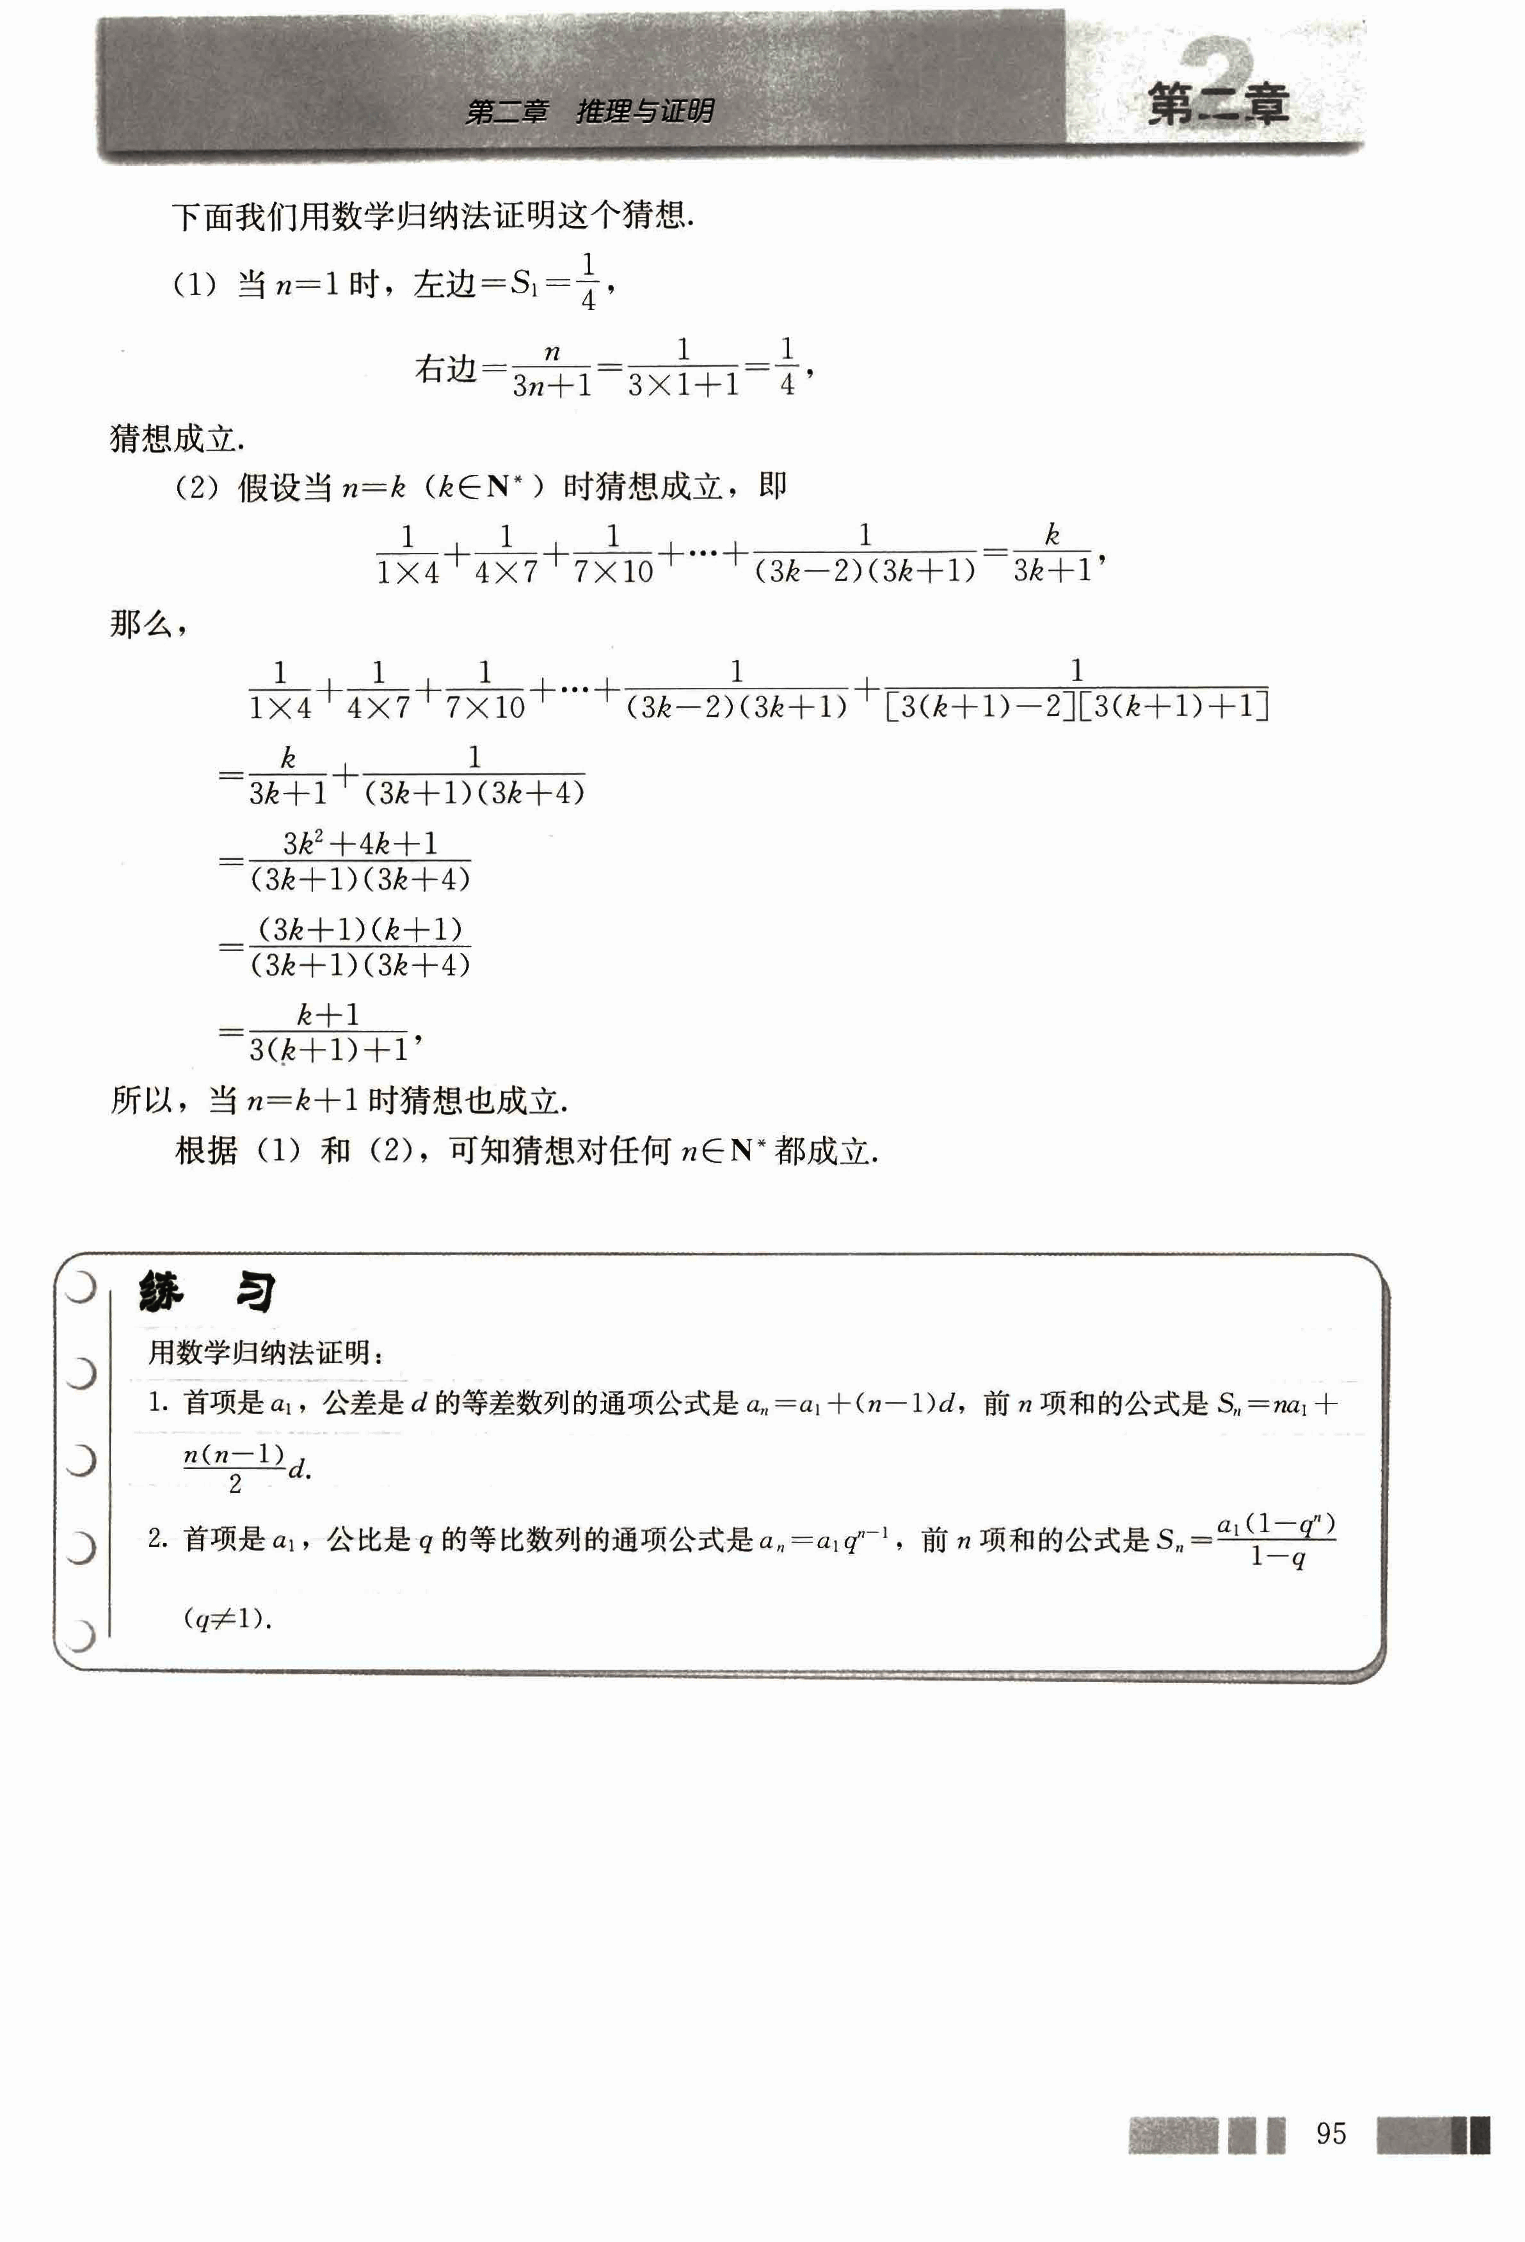 第二章 推理与证明
第二章
下面我们用数学归纳法证明这个猜想.
(1) 当 n=1 时，左边=S₁=1/4，
右边=n/(3n+1)=1/(3×1+1)=1/4，
猜想成立.
(2) 假设当 n=k (k∈N*) 时猜想成立，即
1/(1×4)+1/(4×7)+1/(7×10)+…+1/((3k−2)(3k+1))=k/(3k+1)，
那么，
1/(1×4)+1/(4×7)+1/(7×10)+…+1/((3k−2)(3k+1))+1/([3(k+1)−2][3(k+1)+1])
=k/(3k+1)+1/((3k+1)(3k+4))
=(3k²+4k+1)/((3k+1)(3k+4))
=((3k+1)(k+1))/((3k+1)(3k+4))
=(k+1)/(3(k+1)+1)，
所以，当 n=k+1 时猜想也成立.
根据 (1) 和 (2)，可知猜想对任何 n∈N* 都成立.
练 习
用数学归纳法证明：
1. 首项是 a₁，公差是 d 的等差数列的通项公式是 aₙ=a₁+(n−1)d，前 n 项和的公式是 Sₙ=na₁+
n(n−1)/2 d.
2. 首项是 a₁，公比是 q 的等比数列的通项公式是 aₙ=a₁qⁿ⁻¹，前 n 项和的公式是 Sₙ=a₁(1−qⁿ)/(1−q)
(q≠1).
95